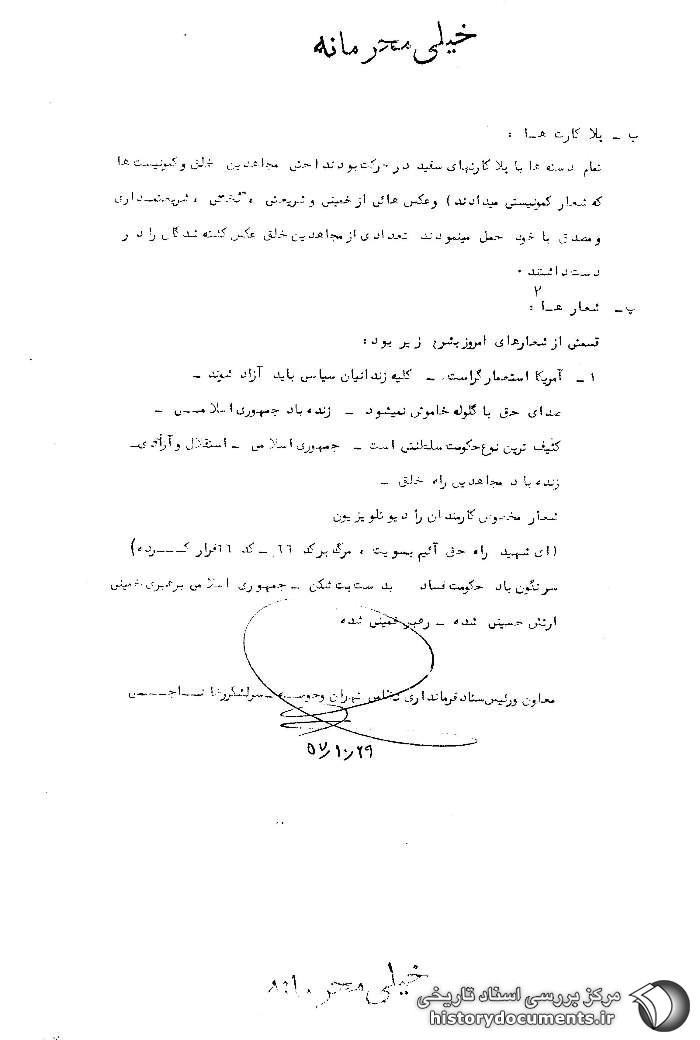 خیلی محرمانه
ب - پلا کارت هـا :
تمام دسته ها با پلا کارتهای سفید در حرکت بودند (حتی مجاهدین خلق و کمونیست ها
که شعار کمونیستی میدادند) و عکس هائی از خمینی و شریعتی ، ، شریعتمـداری
و مصدق با خود حمل مینمودند تعدادی از مجاهدین خلق عکس کشته شدگان را در
دست داشتند .
۲
پ - شعار هـا :
قسمتی از شعارهای امروز بشرح زیر بود :
۱ - آمریکا استعمار گراست. - کلیه زندانیان سیاسی باید آزاد شوند -
صدای حق با گلوله خاموش نمیشود - زنده باد جمهوری اسلامـی -
کثیف ترین نوع حکومت سلطنتی است - جمهوری اسلامی - استقلال و آزادی -
زنده باد مجاهدین راه خلق -
شعار مخصوص کارمندان رادیو تلویزیون
(ای شهید راه حق آئیم بسویت ، مرگ بر کد ۶۶ - کد ۶۶ فرار کـــرده)
سرنگون باد حکومت فساد بدست بت شکن - جمهوری اسلامی برهبری خمینی
ارتش حسینی شده - رهبر خمینی شده
معاون و رئیس ستاد فرمانداری نظامی تهران و حومـه - سرلشگر رضا نـاجـی
۵۷/۱۰/۲۹
خیلی محرمانه
مرکز بررسی اسناد تاریخی
historydocuments.ir